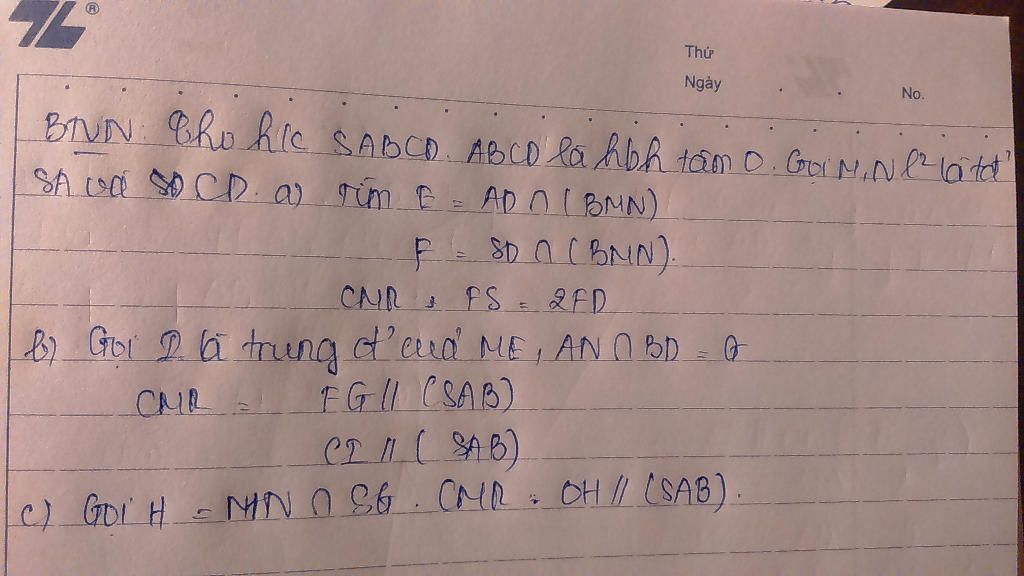 ®
Thứ
Ngày
No.
BNN: Cho h/c SABCD. ABCD là hbh tâm O. Gọi M, N l² là tđ'
SA và CD. a) Tìm E = AD ∩ (BMN)
F = SD ∩ (BMN).
CMR: FS = 2FD
b) Gọi I là trung đ' của ME, AN ∩ BD = G
CMR = FG // (SAB)
CI // (SAB)
c) Gọi H = MN ∩ SG. CMR: OH // (SAB).